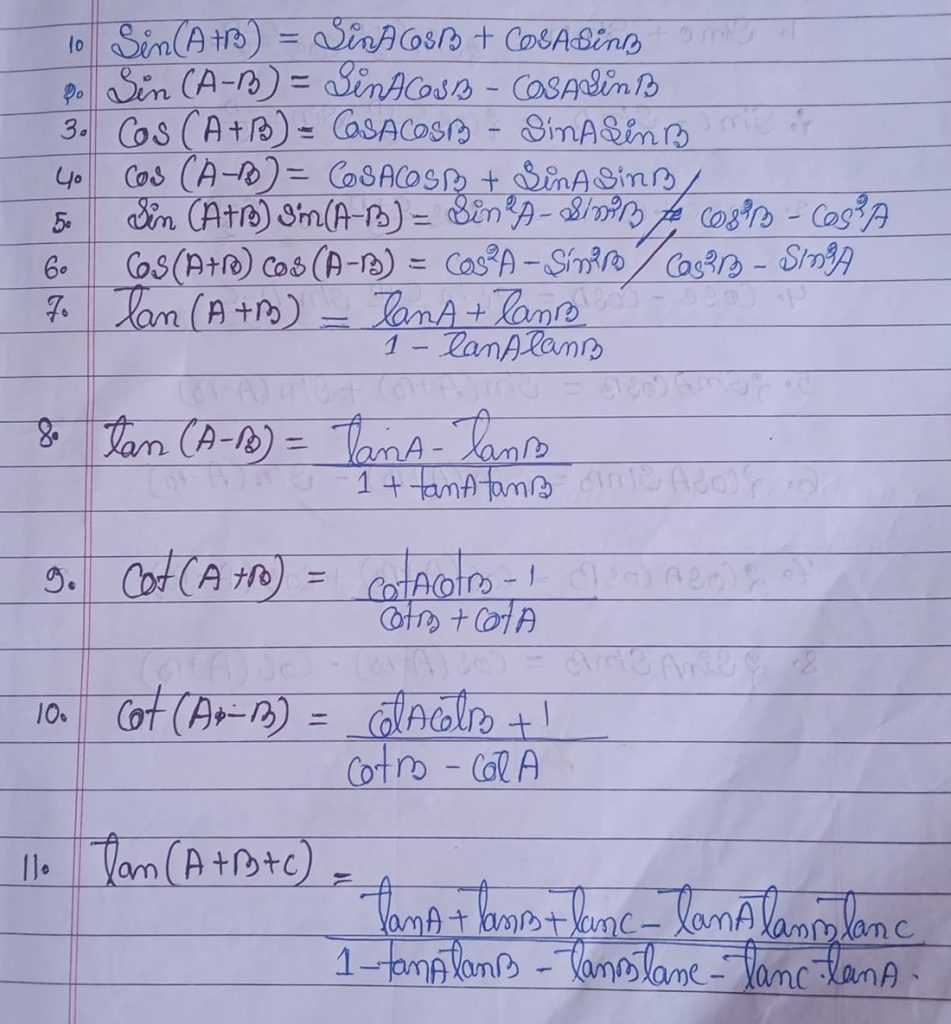 1. Sin(A+B) = SinACosB + CosASinB
2. Sin (A-B) = SinACosB - CosASinB
3. Cos (A+B) = CosACosB - SinASinB
4. Cos (A-B) = CosACosB + SinASinB
5. Sin (A+B) Sin(A-B) = Sin²A - Sin²B / Cos²B - Cos²A
6. Cos(A+B) Cos (A-B) = Cos²A - Sin²B / Cos²B - Sin²A
7. Tan (A+B) = TanA + TanB
1 - TanATanB
8. Tan (A-B) = TanA - TanB
1 + tanAtanB
9. Cot(A+B) = CotACotB - 1
CotB + CotA
10. Cot (A-B) = CotACotB + 1
CotB - CotA
11. Tan(A+B+C) =
TanA + TanB + TanC - TanATanBTanC
1 - tanATanB - TanBTanC - TanC.TanA.